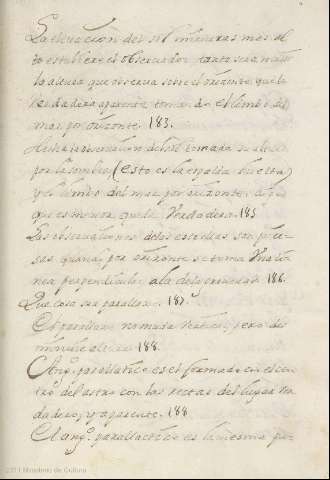 La elevacion del sol mientras mas al
to estubiere el observador, tanto sera maior
la altura que observa sobre el orizonte, que la
verdadera aparente tomando el limbo del
mar por orizonte. 183.
Hecha la observacion del sol tomada su altura
por la sombra (esto es la espalda buelta)
y el limbo del mar por orizonte,
que es menor que la Verdadera. 185
Las observaciones de las estrellas son preci-
sas quando por orizonte se toma una li
nea perpendicular a la de la gravedad 186.
Que cosa sea parallaxe. 187.
El parallaxe no muda Vertical, pero dis
minuie altura 188.
Ang.º parallatico es el formado en el cen
tro del astro con las rectas del lugar Ver
dadero, y aparente. 188
El ang.º parallactico es la mesma
2011 Ministerio de Cultura